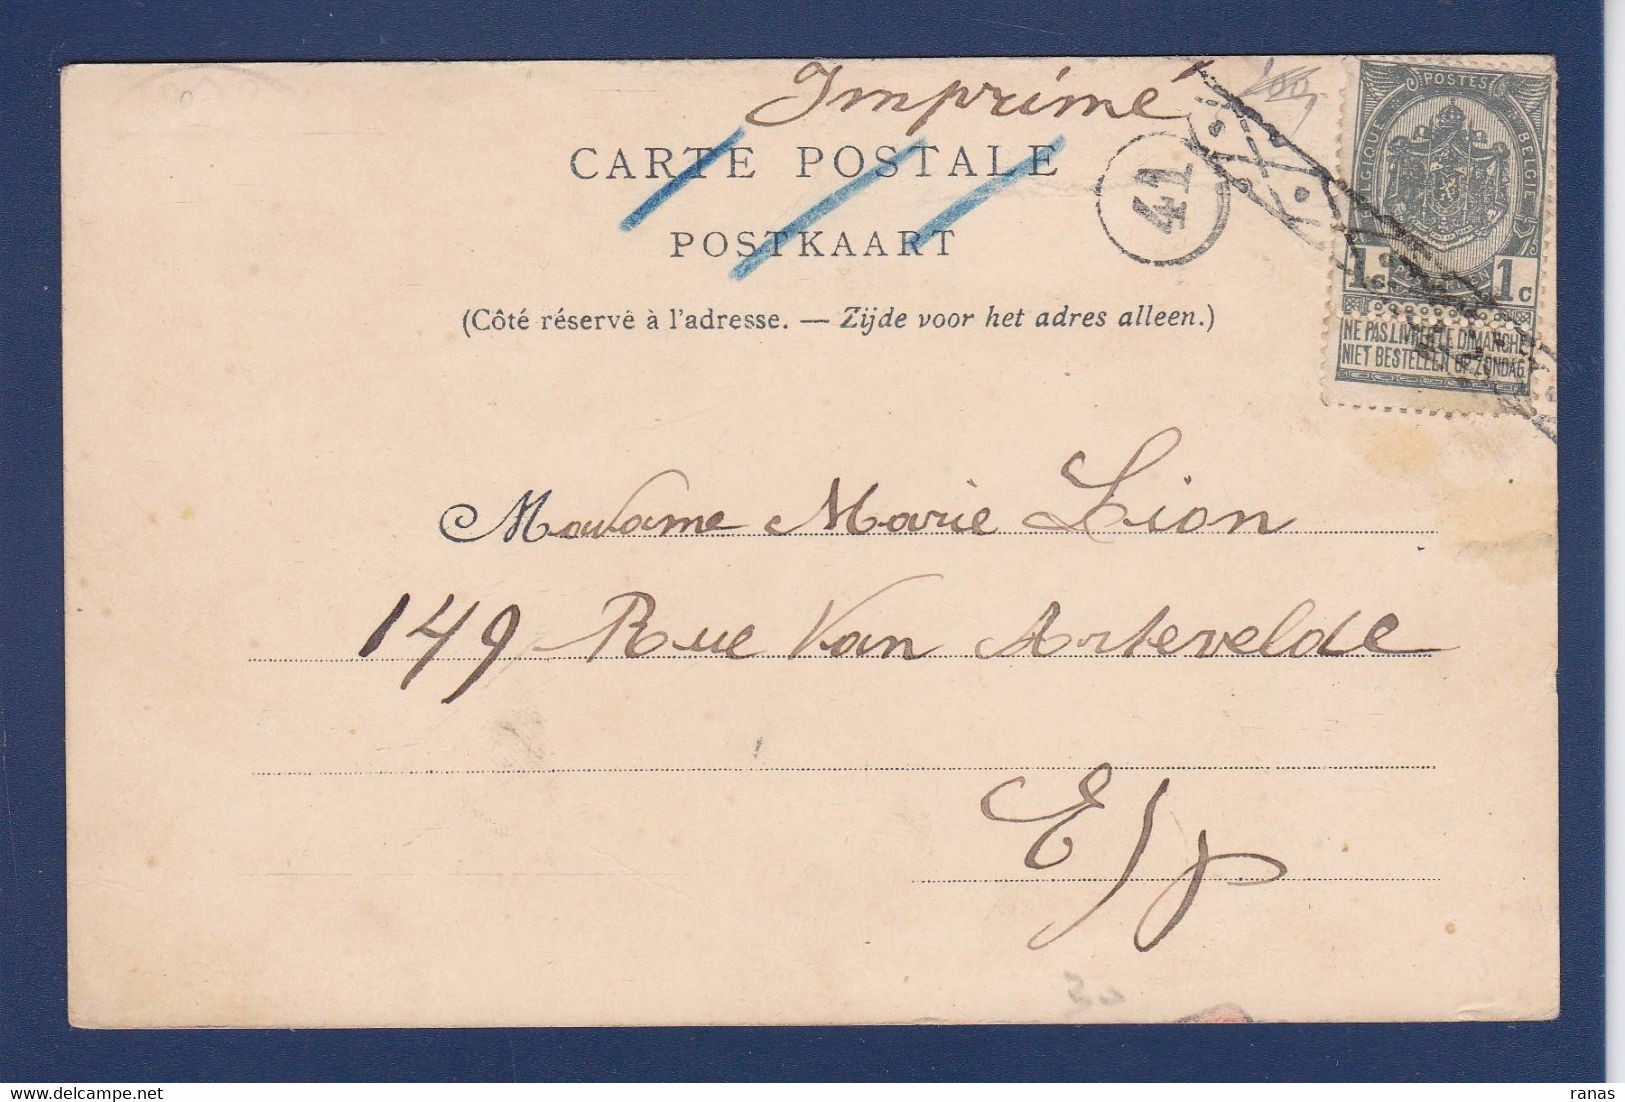 Imprimé
CARTE POSTALE
POSTKAART
(Côté réservé à l'adresse. — Zijde voor het adres alleen.)
41
POSTES
BELGIQUE BELGIE
1c 1c
NE PAS LIVRER LE DIMANCHE
NIET BESTELLEN OP ZONDAG
Madame Marie Lion
149 Rue Van Artevelde
E/
30
ranas